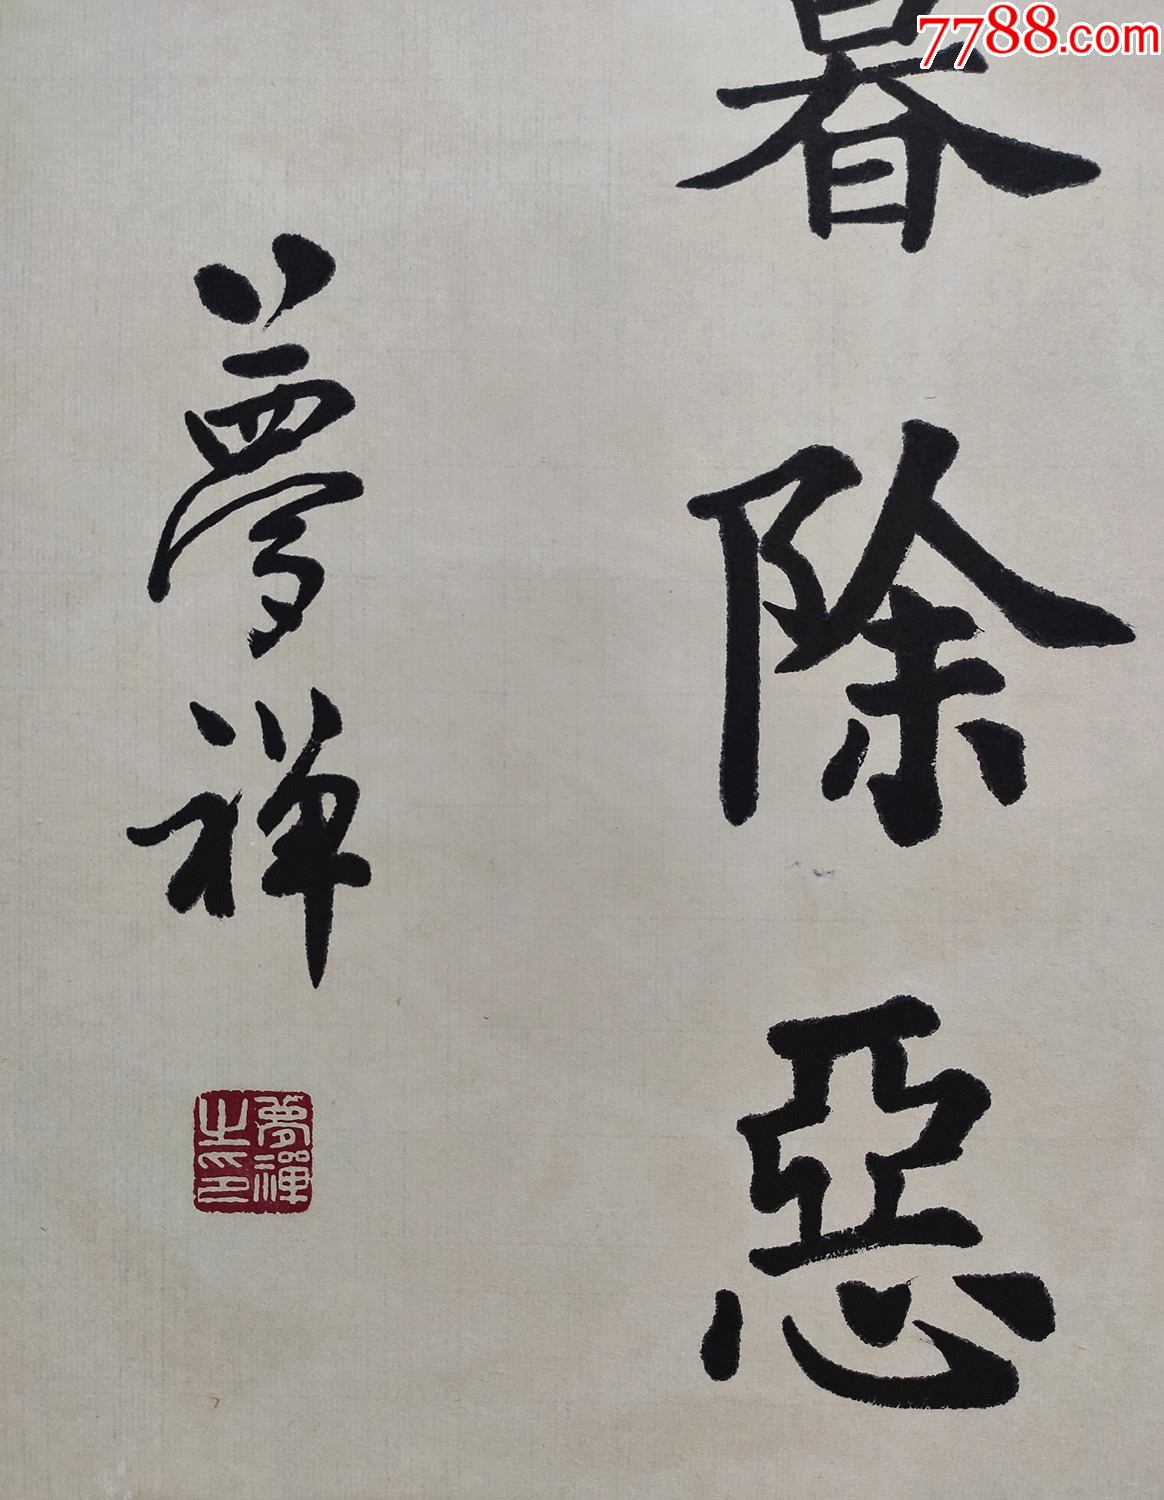 7788.com
暮除惡
夢禅
夢禪之印